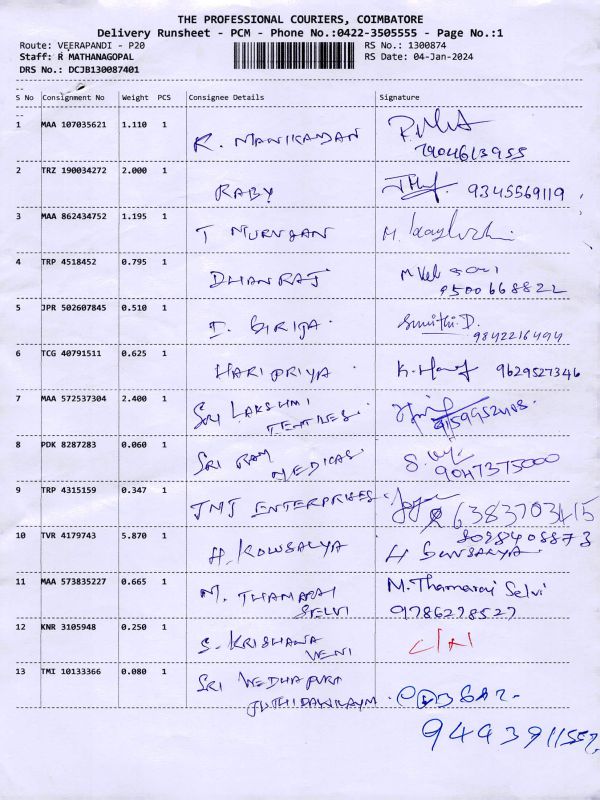 THE PROFESSIONAL COURIERS, COIMBATORE
Delivery Runsheet - PCM - Phone No.:0422-3505555 - Page No.:1
Route: VEERAPANDI - P20 RS No.: 1300874
Staff: R MATHANAGOPAL RS Date: 04-Jan-2024
DRS No.: DCJB130087401
--
S No Consignment No Weight PCS Consignee Details Signature
--
1 MAA 107035621 1.110 1 R. MANIKANDAN
7904613955
2 TRZ 190034272 2.000 1 RABY 9345569119
3 MAA 862434752 1.195 1 T MURUGAN M.
4 TRP 4518452 0.795 1 DHANRAJ
9500668822
5 JPR 502607845 0.510 1 I. GIRIJA. Sumithi.D.
9842216494
6 TCG 40791511 0.625 1 HARI PRIYA. 9629527346
7 MAA 572537304 2.400 1 SRI LAKSHMI
TEXTILES.
8 PDK 8287283 0.060 1 SRI RAM
MEDICAS
9047375000
9 TRP 4315159 0.347 1 JMJ ENTERPRISES. 6383703415
10 TVR 4179743 5.870 1 A. KOWSALYA
11 MAA 573835227 0.665 1 M. THAMARAI
SELVI
M. Thamarai Selvi
9786278527
12 KNR 3105948 0.250 1 S. KRISHANA
VENI
13 TMI 10133366 0.080 1 SRI